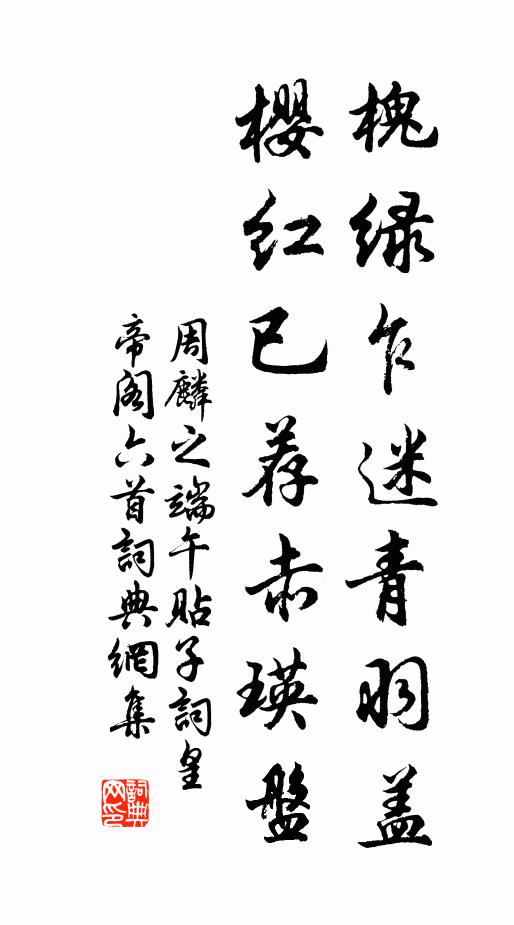 槐绿乍迷青羽盖
樱红已荐赤瑛盘
周麟之端午贴子詞皇
帝阁六首詞典網集
詞典网印